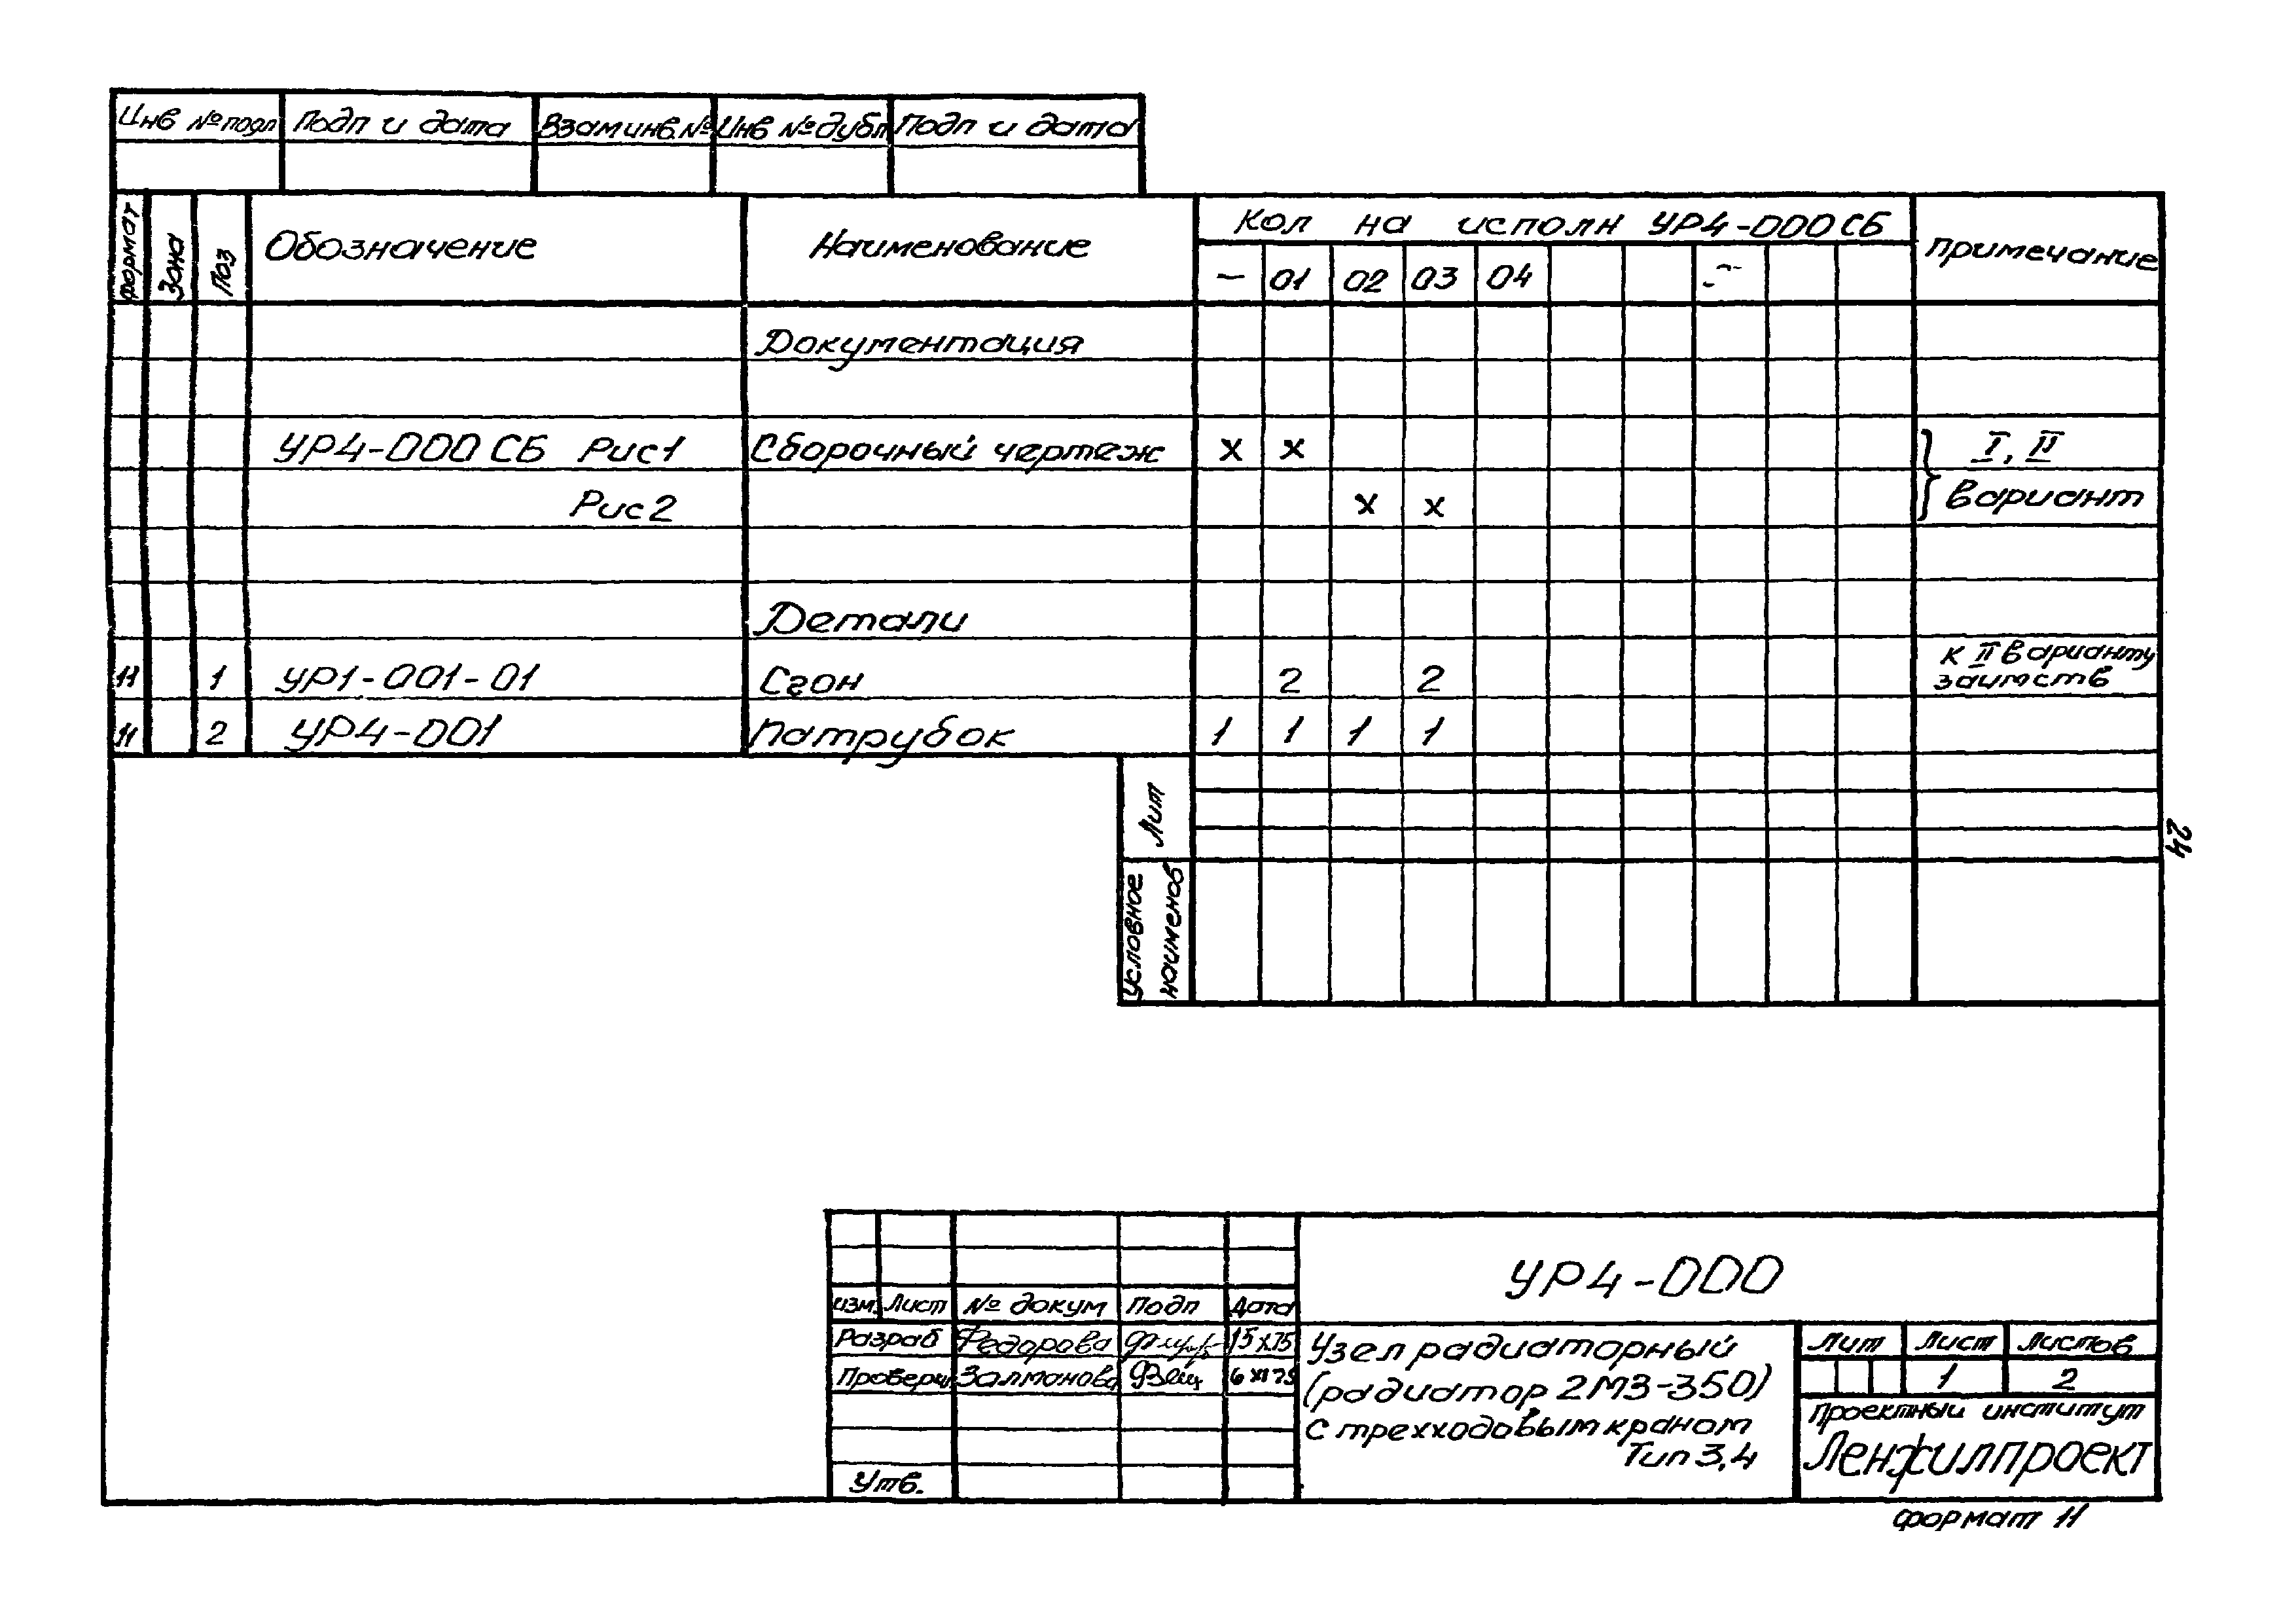 Инв № подл Подп и дата Взам инв. № Инв № дубл Подп и дата
формат Зона Поз Обозначение Наименование Кол на исполн УР4-000 СБ Примечание
— 01 02 03 04
Документация
УР4-000 СБ Рис1 Сборочный чертеж х х I, II
Рис2 х х вариант
Детали
11 1 УР1-001-01 Сгон 2 2 к II варианту
заимств
11 2 УР4-001 Патрубок 1 1 1 1
Лит
Условное
наименов
24
УР4-000
изм. Лист № докум Подп Дата
Разраб Федорова 15 X 75
Проверил Залманова 6 XI 75
Утв.
Узел радиаторный
(радиатор 2МЗ-350)
с трехходовым краном
Тип 3,4
Лит Лист Листов
1 2
Проектный институт
Ленжилпроект
формат 11